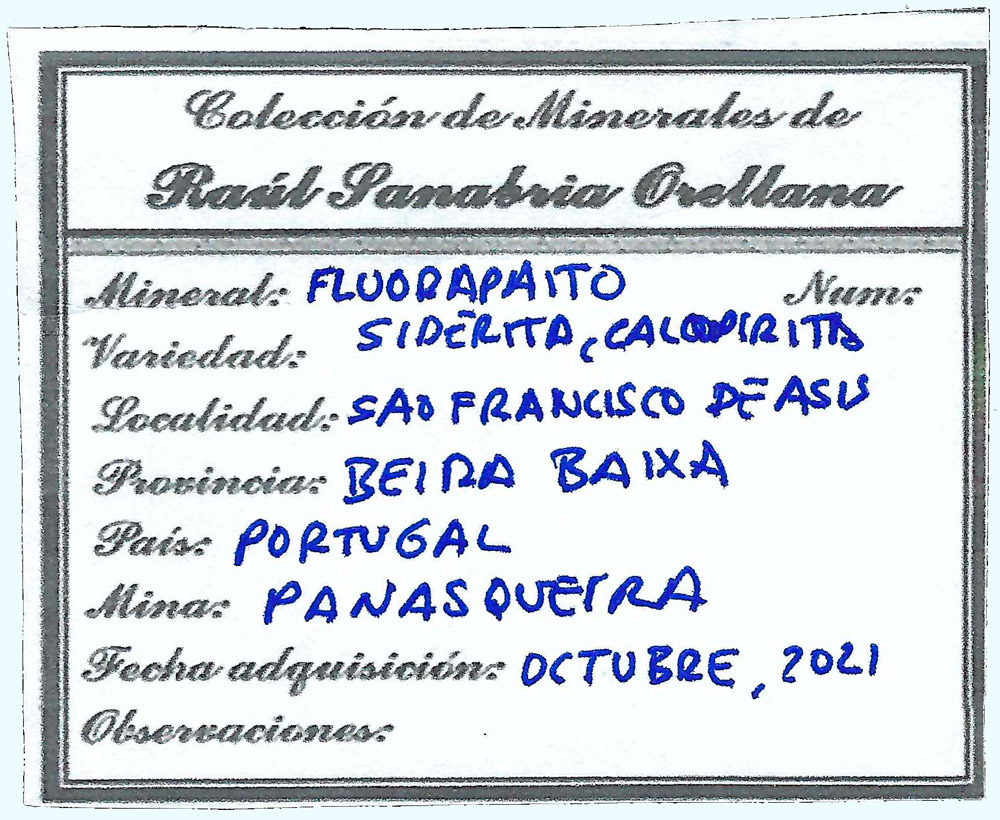 Colección de Minerales de
Raúl Sanabria Orellana
Mineral: FLUORAPAITO Num:
Variedad: SIDERITA, CALCOPIRITA
Localidad: SAO FRANCISCO DE ASIS
Provincia: BEIRA BAIXA
País: PORTUGAL
Mina: PANASQUEIRA
Fecha adquisición: OCTUBRE, 2021
Observaciones: